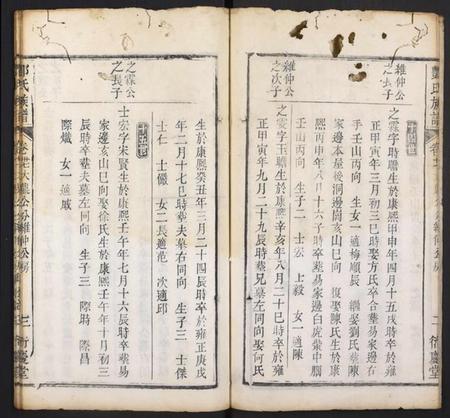 鄭氏族譜
卷廿一
維仲公
之長子
十二世
之霖字時膽生於康熙甲申年四月十五戌時卒於雍
正甲寅年三月初三巳時娶方氏卒合塟易家邊右
手壬山丙向 生女一適梅順辰 繼娶劉氏塟陳
家邊本屋後洞邊崗亥山巳向 復娶陳氏生於康
熙丙申年八月十六子時卒塟易家邊白虎嘴中腦
壬山丙向 生子二 士宏 士毅 女一適陳
維仲公
之次子
之雯字玉瞻生於康熙辛亥年八月二十巳時卒於雍
正甲寅年九月二十九辰時塟兄墓左同向娶何氏
二 衍慶堂
生於康熙癸丑年三月二十四辰時卒於雍正庚戌
年二月十七巳時塟夫墓右同向 生子三 士傑
士仁 士儼 女二長適范 次適邱
十三世
之霖公
之長子
士宏字宋賢生於康熙壬午年七月十六辰時卒塟易
家邊亥山巳向娶徐氏生於康熙壬午年十月初三
辰時卒塟夫墓左同向 生子三 際時 際昌
際熾 女一適戚
氏族譜
三 衍慶堂